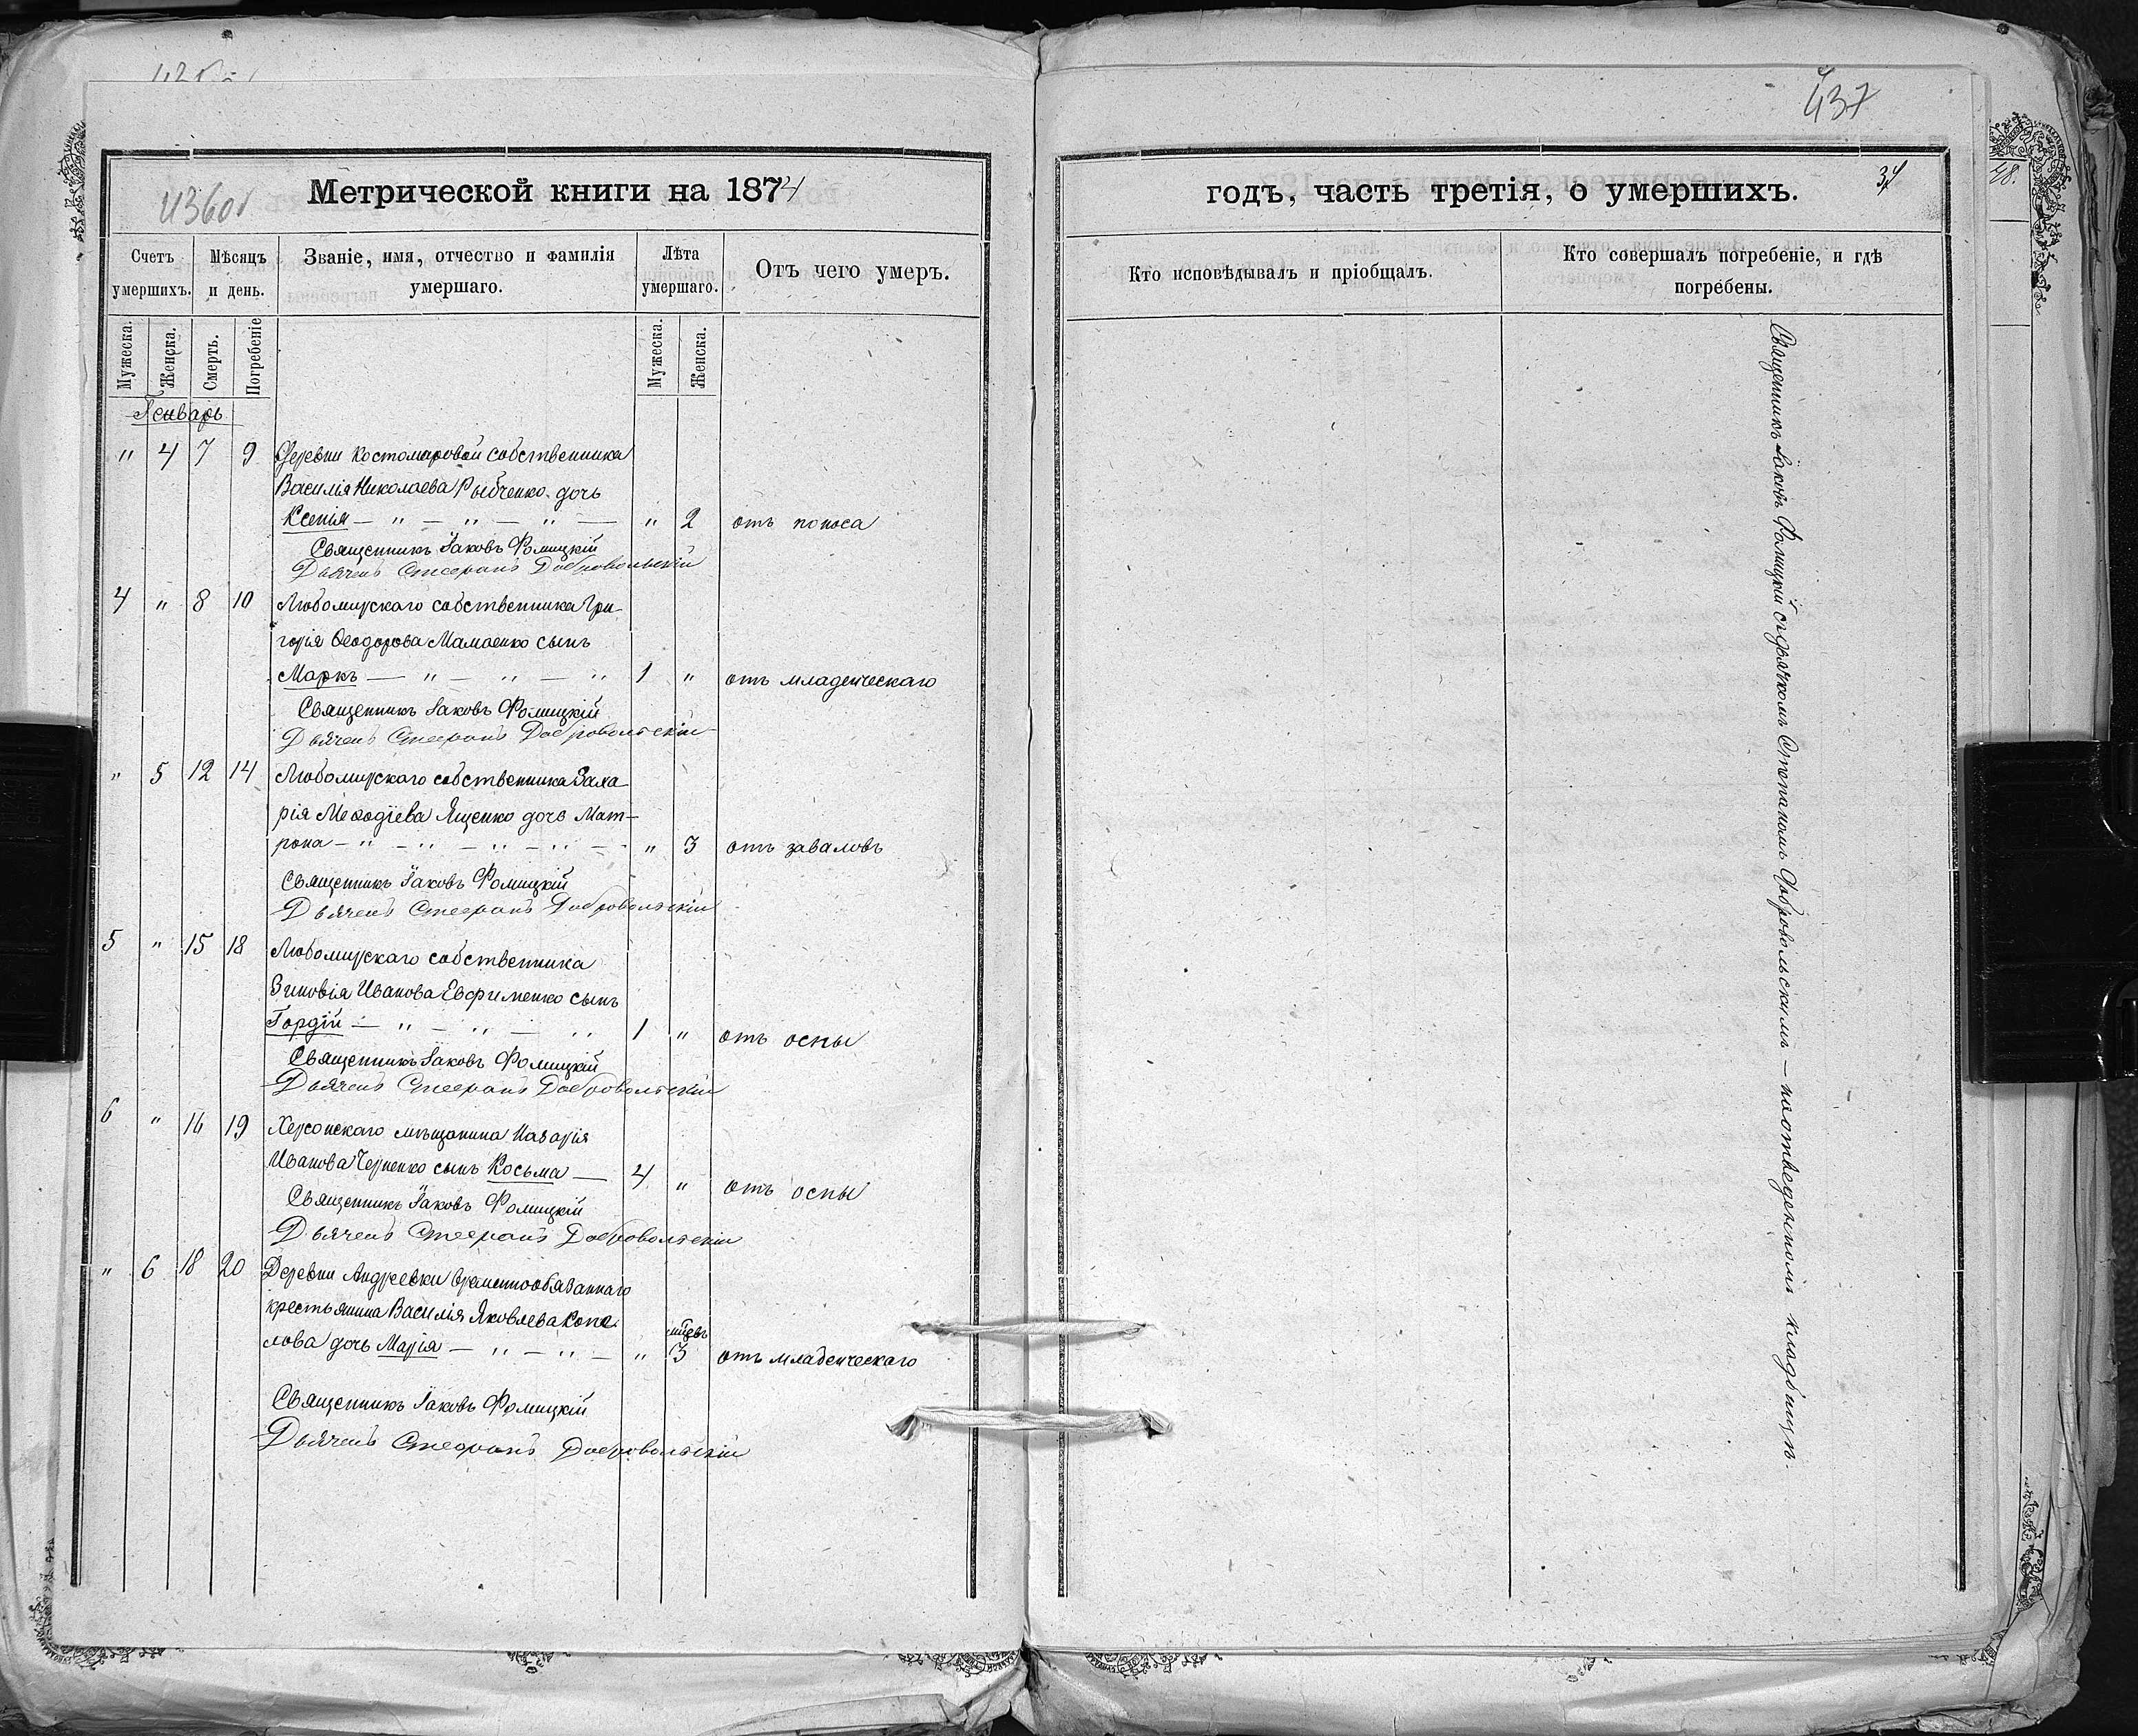 436об
Метрической книги на 1874
Счетъ умершихъ.
Мѣсяцъ и день.
Званіе, имя, отчество и фамилія умершаго.
Лѣта умершаго.
Отъ чего умеръ.
Мужеска.
Женска.
Смерть.
Погребеніе
Мужеска.
Женска.
Генварь
" 4 7 9 Деревни Костомаровой собственника
Василія Николаева Рыбченко дочь
Ксенія — " — " — " — " 2 отъ поноса
Священникъ Іаковъ Фомицкій
Дьячекъ Стефанъ Добровольскій
4 " 8 10 Любомирскаго собственника Гри-
горія Ѳеодорова Мамаенко сынъ
Маркъ — " — " — " 1 " отъ младенческаго
Священникъ Іаковъ Фомицкій
Дьячекъ Стефанъ Добровольскій
" 5 12 14 Любомирскаго собственника Заха
рія Меѳодіева Ященко дочь Мат-
рона — " — " — " — " 3 отъ заваловъ
Священникъ Іаковъ Фомицкій
Дьячекъ Стефанъ Добровольскій
5 " 15 18 Любомирскаго собственника
Зиновія Иванова Евфименко сынъ
Гордій — " — " — " 1 " отъ оспы
Священникъ Іаковъ Фомицкій
Дьячекъ Стефанъ Добровольскій
6 " 16 19 Херсонскаго мѣщанина Назарія
Иванова Черненко сынъ Косьма — 4 " отъ оспы
Священникъ Іаковъ Фомицкій
Дьячекъ Стефанъ Добровольскій
" 6 18 20 Деревни Андреевки временнообязаннаго
крестьянина Василія Яковлева Копе
лова дочь Марія — " — " — " мцевъ 3 отъ младенческаго
Священникъ Іаковъ Фомицкій
Дьячекъ Стефанъ Добровольскій
437
годъ, часть третія, о умершихъ.
34
Кто исповѣдывалъ и пріобщалъ.
Кто совершалъ погребеніе, и гдѣ погребены.
Священникъ Іаковъ Фомицкій съ дьячкомъ Стефаномъ Добровольскимъ — на отведенномъ кладбищѣ.
48.